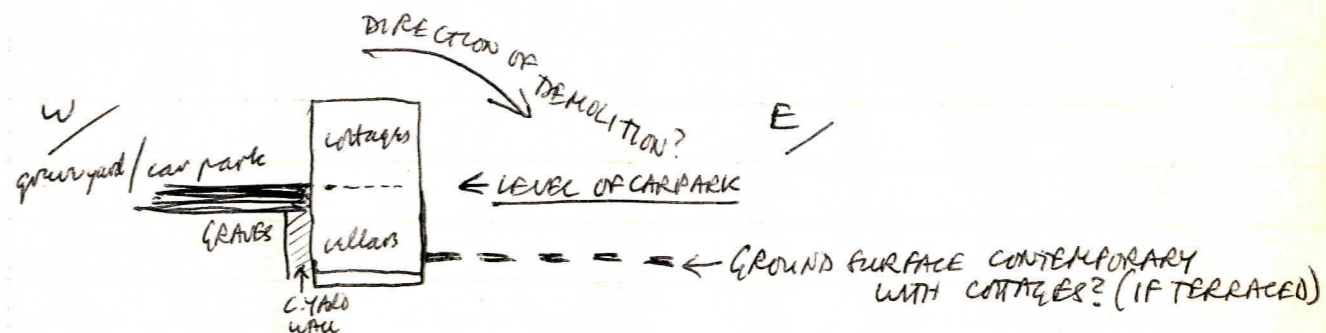 DIRECTION OF DEMOLITION?
W/
E/
graveyard/car park
cottages
← LEVEL OF CARPARK
GRAVES
cellars
← GROUND SURFACE CONTEMPORARY
WITH COTTAGES? (IF TERRACED)
C.YARD
WALL